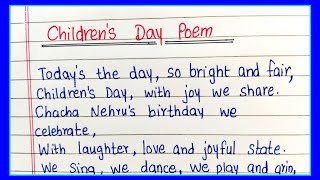 Children's Day Poem
Today's the day, so bright and fair,
Children's Day, with joy we share.
Chacha Nehru's birthday we
celebrate,
With laughter, love and joyful state.
We sing, we dance, we play and grin,